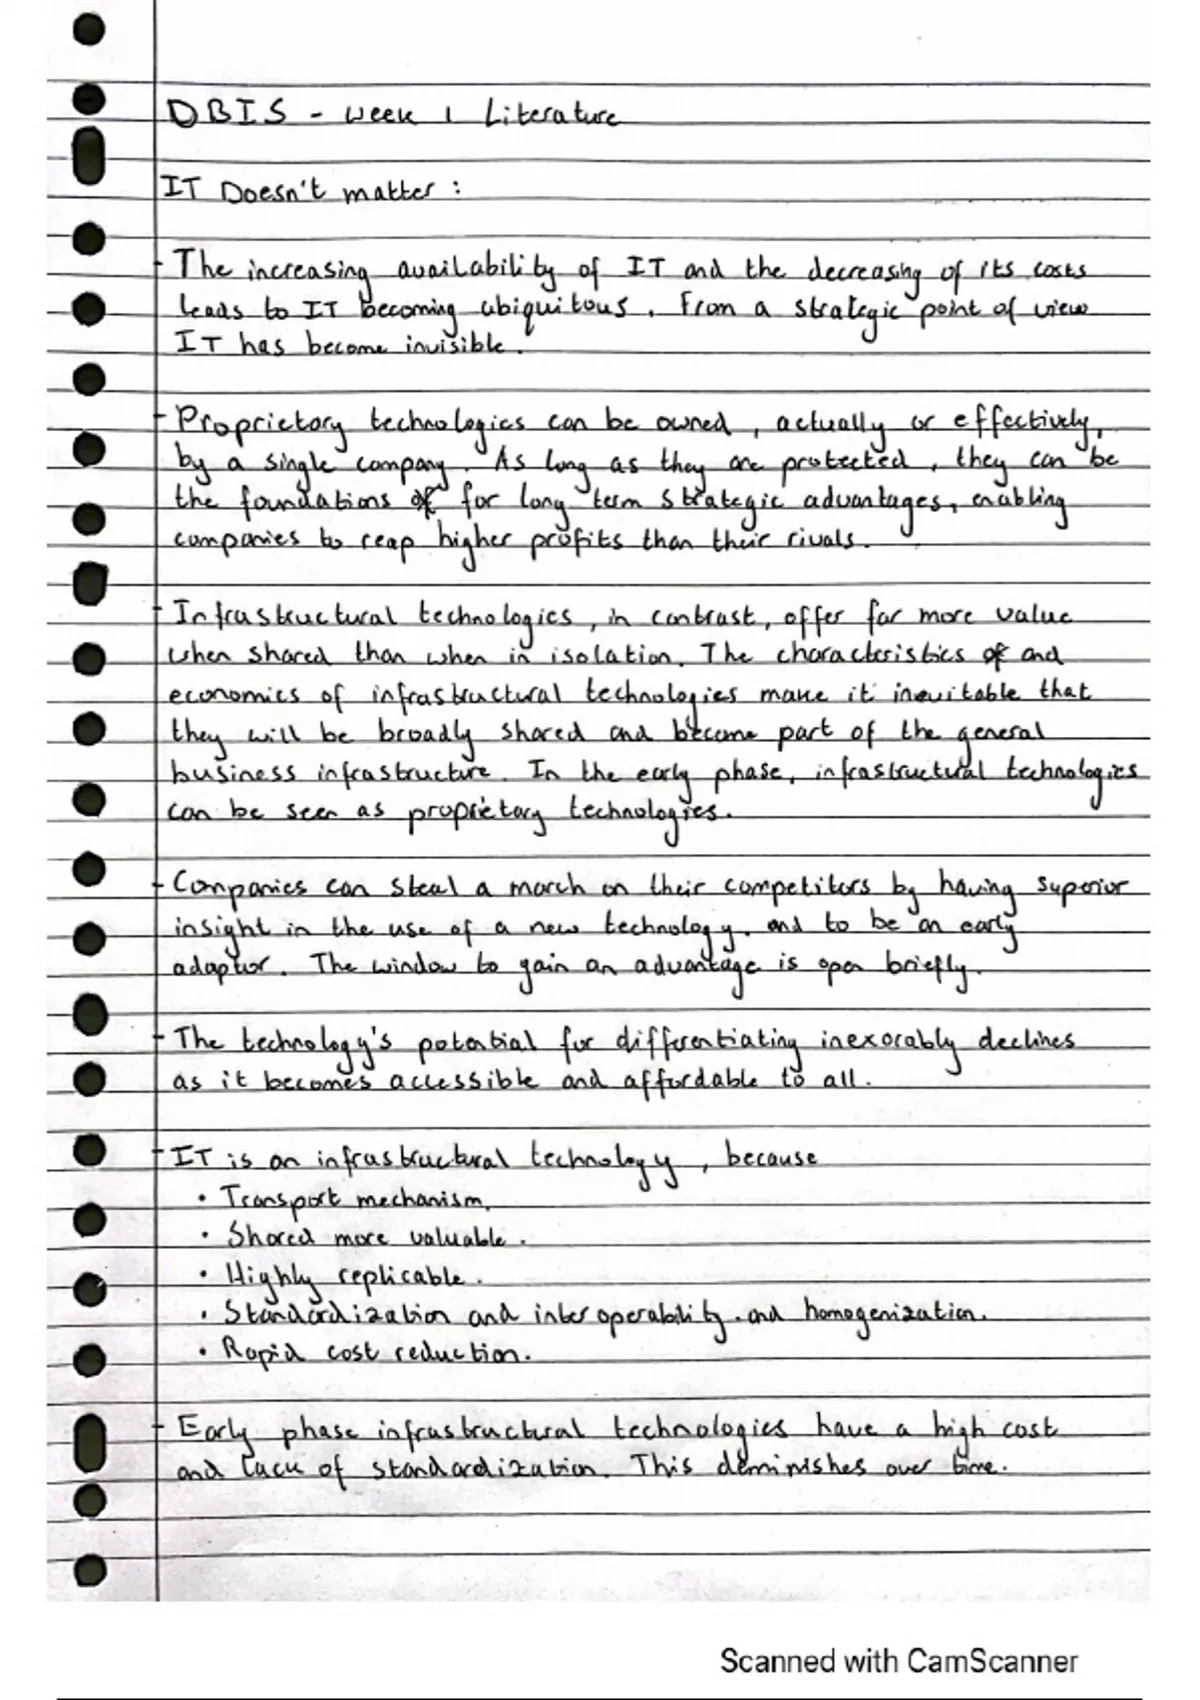 DBIS - week 1 Literature
IT Doesn't matter :
- The increasing availability of IT and the decreasing of its costs
leads to IT becoming ubiquitous. From a strategic point of view
IT has become invisible.
- Proprietary technologies can be owned, actually or effectively,
by a single company. As long as they are protected, they can be
the foundations of for long term strategic advantages, enabling
companies to reap higher profits than their rivals.
- Infrastructural technologies, in contrast, offer far more value
when shared than when in isolation. The characteristics of and
economics of infrastructural technologies make it inevitable that
they will be broadly shared and become part of the general
business infrastructure. In the early phase, infrastructural technologies
can be seen as proprietary technologies.
- Companies can steal a march on their competitors by having superior
insight in the use of a new technology. and to be an early
adaptor. The window to gain an advantage is open briefly.
- The technology's potential for differentiating inexorably declines
as it becomes accessible and affordable to all.
- IT is an infrastructural technology, because
• Transport mechanism.
• Shared more valuable.
• Highly replicable.
• Standardization and interoperability. and homogenization.
• Rapid cost reduction.
- Early phase infrastructural technologies have a high cost
and lack of standardization. This deminishes over time.
Scanned with CamScanner